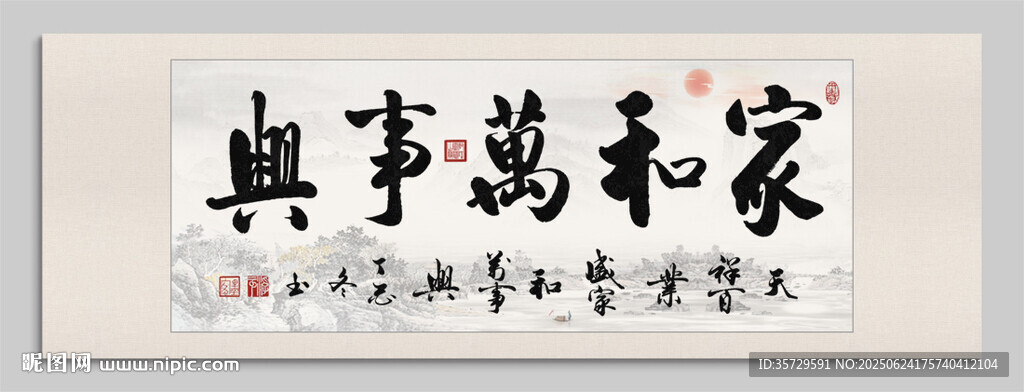 家和萬事興
天祥百業盛家和萬事興丁冬
昵图网 www.nipic.com
ID:35729591 NO:20250624175740412104